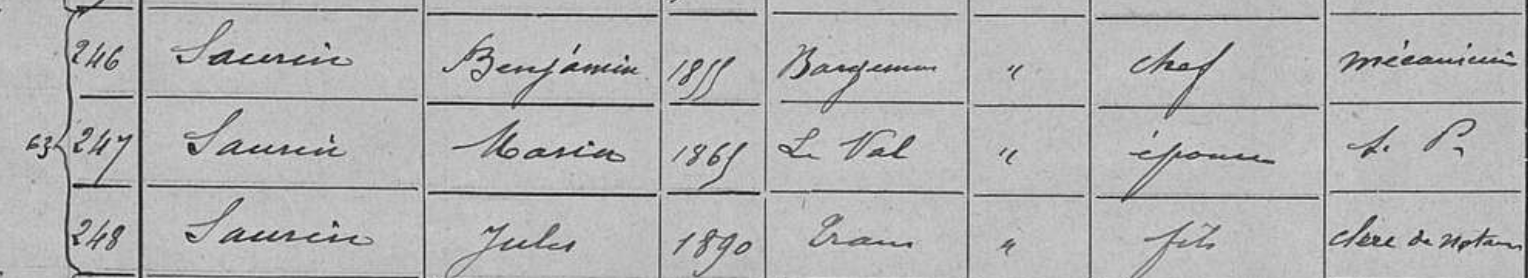 246 Saurin Benjamin 1855 Bargemon " chef mécanicien
63 247 Saurin Maria 1865 Le Val " épouse s. P.
248 Saurin Jules 1890 Trans " fils clerc de notaire